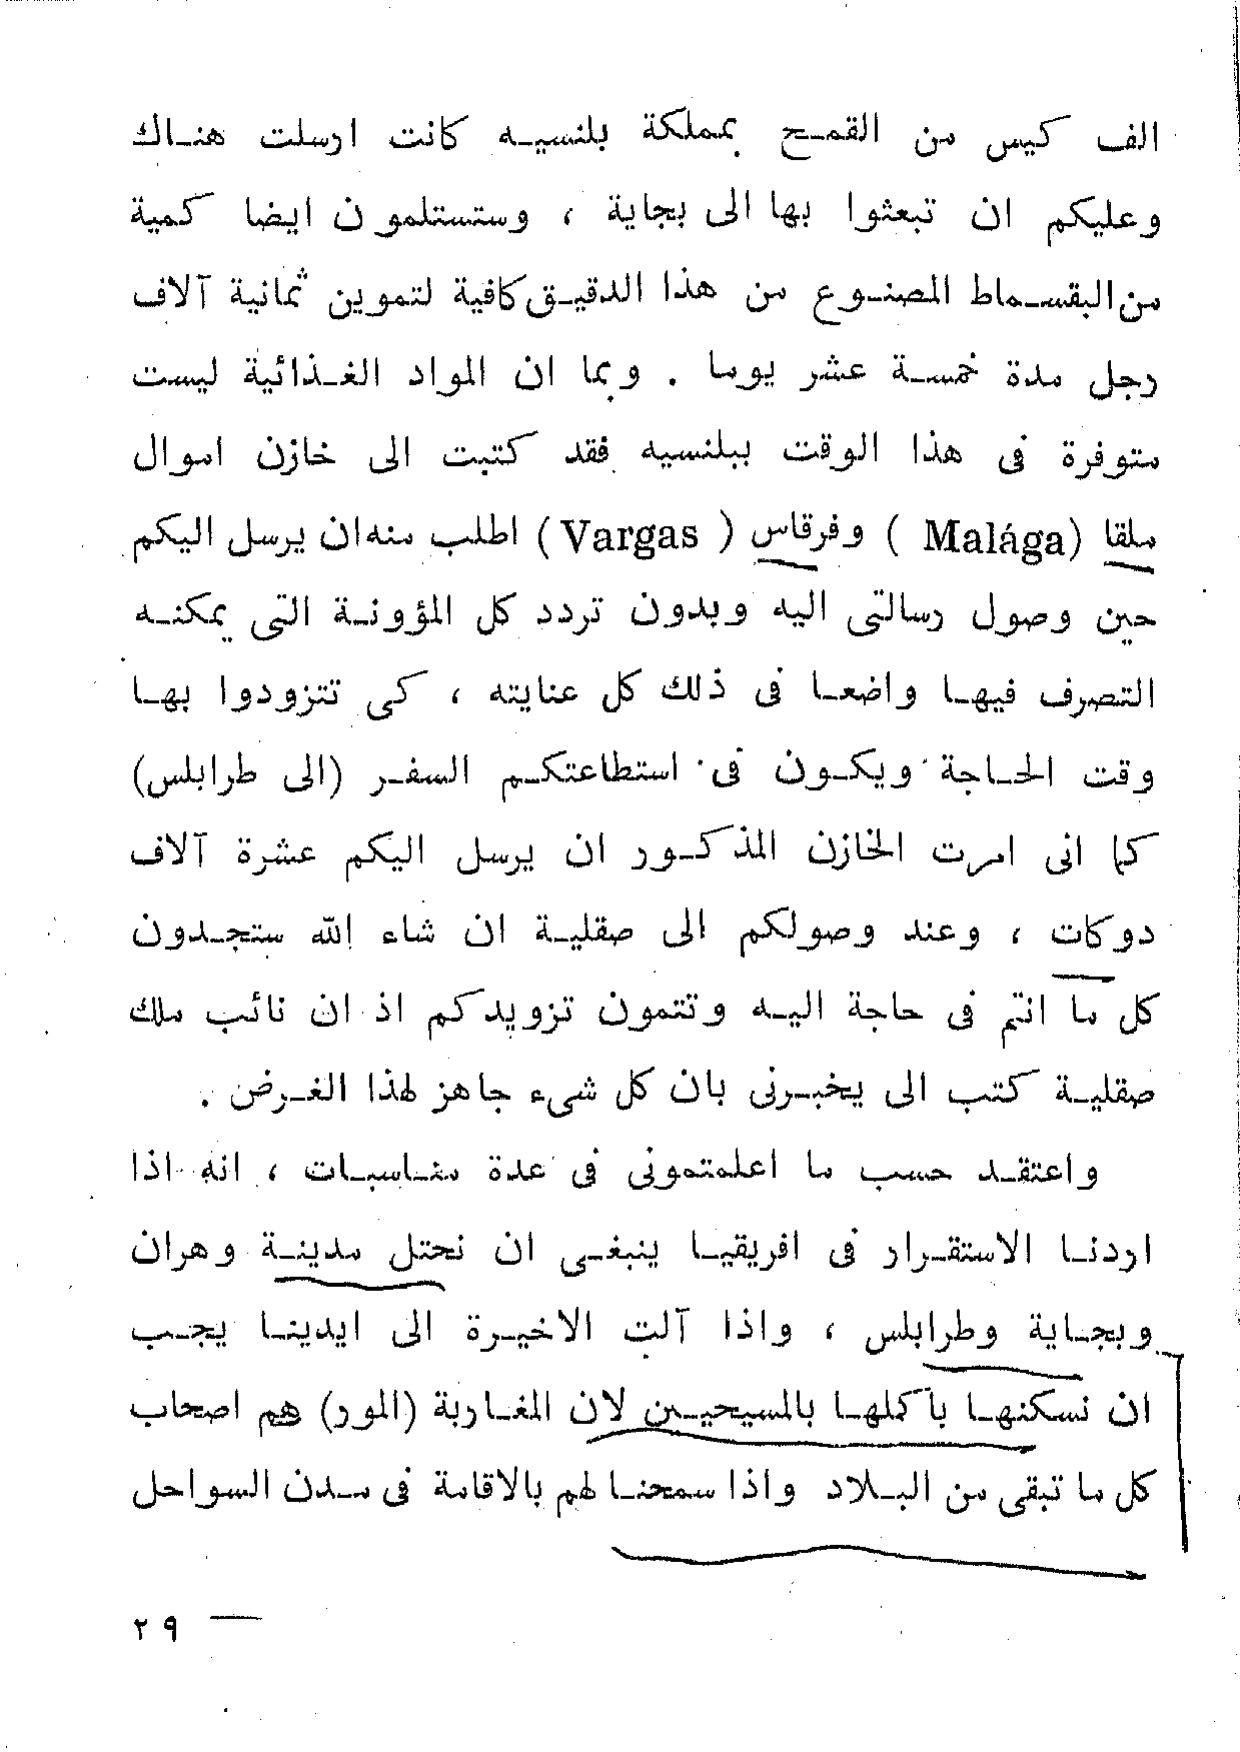 الف كيس من القمح بمملكة بلنسيه كانت ارسلت هناك
وعليكم ان تبعثوا بها الى بجاية ، وستستلمون ايضا كمية
من البقسماط المصنوع من هذا الدقيق كافية لتموين ثمانية آلاف
رجل مدة خمسة عشر يوما . وبما ان المواد الغذائية ليست
متوفرة فى هذا الوقت ببلنسيه فقد كتبت الى خازن اموال
ملقا (Malága ) وفرقاس ( Vargas) اطلب منه ان يرسل اليكم
حين وصول رسالتى اليه وبدون تردد كل المؤونة التى يمكنه
التصرف فيها واضعا فى ذلك كل عنايته ، كى تتزودوا بها
وقت الحاجة ويكون فى استطاعتكم السفر (الى طرابلس)
كما انى امرت الخازن المذكور ان يرسل اليكم عشرة آلاف
دوكات ، وعند وصولكم الى صقلية ان شاء الله ستجدون
كل ما انتم فى حاجة اليه وتتمون تزويدكم اذ ان نائب ملك
صقلية كتب الى يخبرنى بان كل شىء جاهز لهذا الغرض .
واعتقد حسب ما اعلمتمونى فى عدة مناسبات ، انه اذا
اردنا الاستقرار فى افريقيا ينبغى ان نحتل مدينة وهران
وبجاية وطرابلس ، واذا آلت الاخيرة الى ايدينا يجب
ان نسكنها بأكملها بالمسيحيين لان المغاربة (المور) هم اصحاب
كل ما تبقى من البلاد واذا سمحنا لهم بالاقامة فى مدن السواحل
— ٢٩